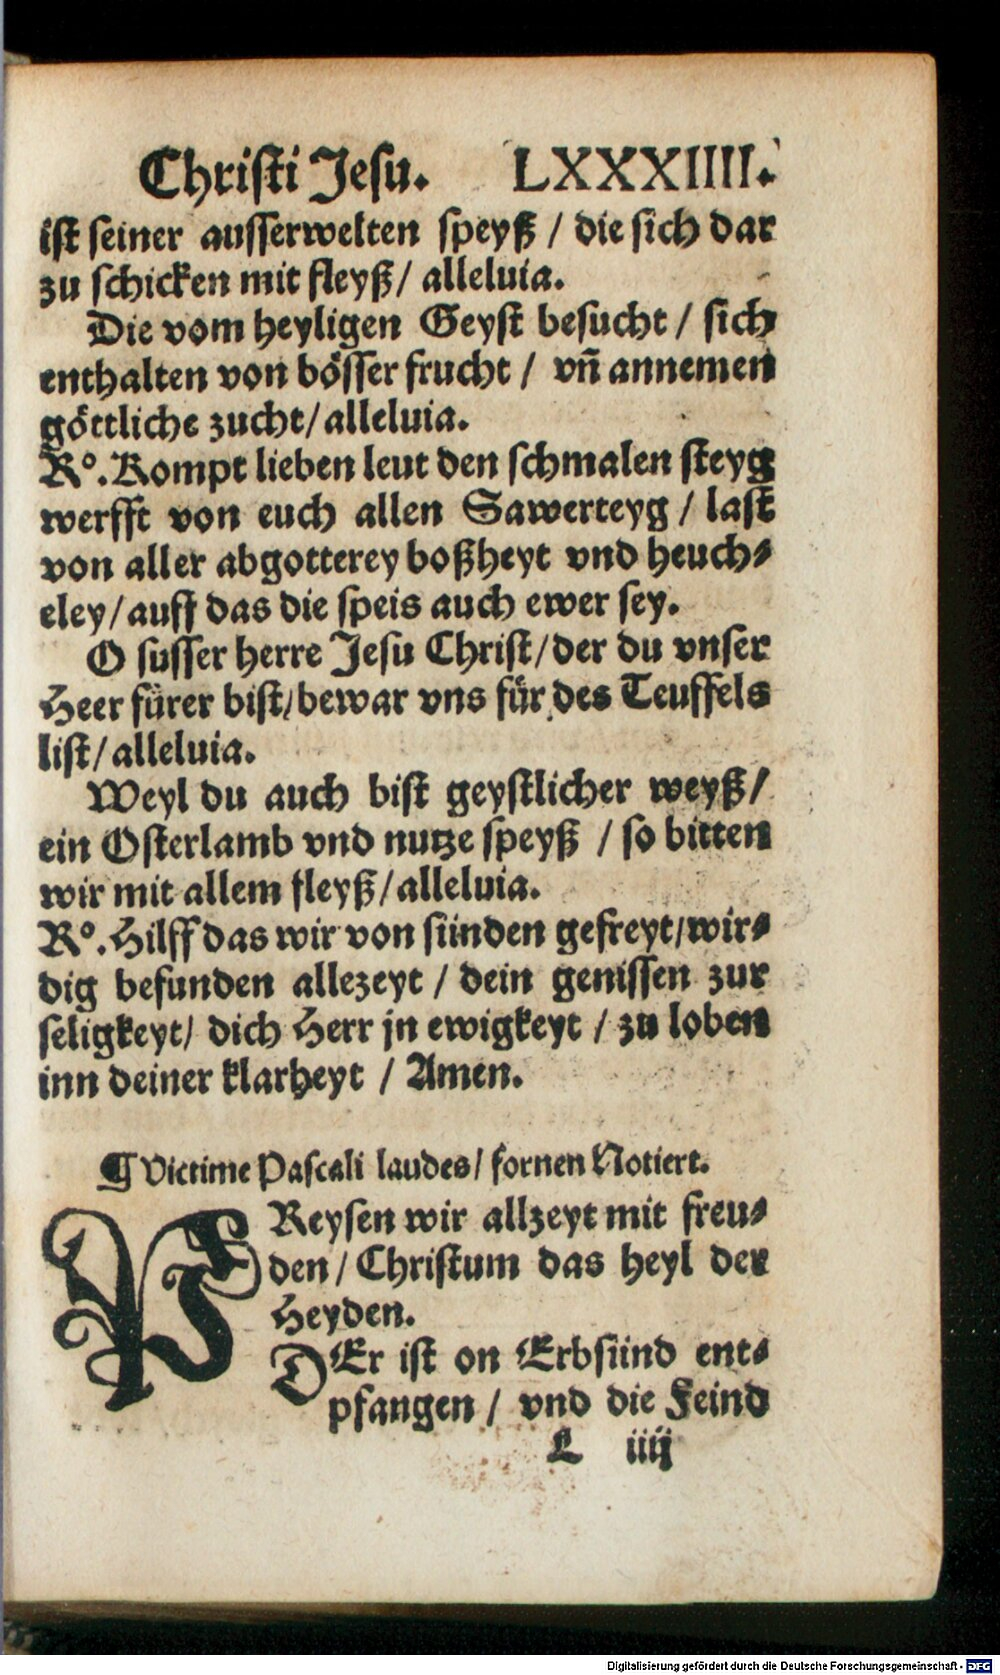 Christi Jesu. LXXXIIII.
ist seiner ausserwelten speyß / die sich dar
zu schicken mit fleyß / alleluia.
Die vom heyligen Geyst besucht / sich
enthalten von bösser frucht / vn̄ annemen
göttliche zucht / alleluia.
R°. Kompt lieben leut den schmalen steyg
werfft von euch allen Sawerteyg / last
von aller abgotterey boßheyt vnd heuch⸗
eley / auff das die speis auch ewer sey.
O susser herre Jesu Christ / der du vnser
Heer fürer bist / bewar vns für des Teuffels
list / alleluia.
Weyl du auch bist geystlicher weyß /
ein Osterlamb vnd nutze speyß / so bitten
wir mit allem fleyß / alleluia.
R°. Hilff das wir von sünden gefreyt / wir⸗
dig befunden allezeyt / dein genissen zur
seligkeyt / dich Herr jn ewigkeyt / zu loben
inn deiner klarheyt / Amen.
¶ Victime Pascali laudes / fornen Notiert.
PReysen wir allzeyt mit freu⸗
den / Christum das heyl der
Heyden.
DEr ist on Erbsünd ent⸗
pfangen / vnd die Feind
L iiij
Digitalisierung gefördert durch die Deutsche Forschungsgemeinschaft - DFG